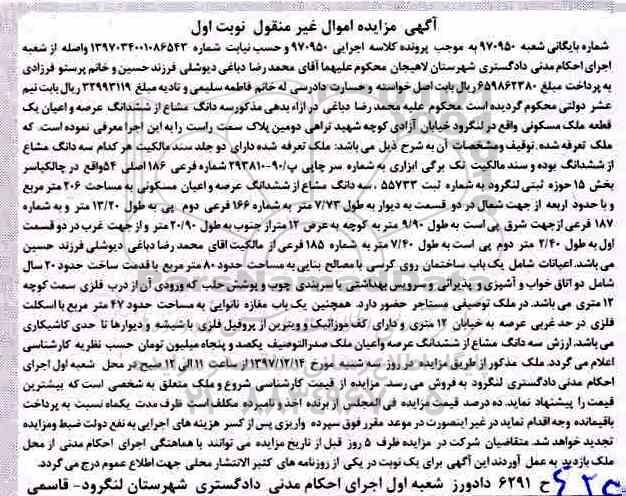 آگهی مزایده اموال غیر منقول نوبت اول
شماره بایگانی شعبه ۹۷۰۹۵۰ به موجب پرونده کلاسه اجرایی ۹۷۰۹۵۰ و حسب نیابت شماره ۱۳۹۷۰۳۴۰۰۱۰۸۶۵۴۳ واصله از شعبه
اجرای احکام مدنی دادگستری شهرستان لاهیجان محکوم علیهما آقای محمد رضا دباغی دیوشلی فرزند حسین و خانم پرستو فرزادی
به پرداخت مبلغ ۶۵۹۸۶۲۳۸۰ ریال بابت اصل خواسته و خسارت دادرسی له خانم فاطمه سلیمی و تادیه مبلغ ۳۲۹۹۳۱۱۹ ریال بابت نیم
عشر دولتی محکوم گردیده است محکوم علیه محمد رضا دباغی در ازاء بدهی مذکور سه دانگ مشاع از ششدانگ عرصه و اعیان یک
قطعه ملک مسکونی واقع در لنگرود خیابان آزادی کوچه شهید تراهی دومین پلاک سمت راست را به این اجرا معرفی نموده است. که
ملک تعرفه شده، توقیف ومشخصات آن به شرح ذیل می باشد: ملک تعرفه شده دارای دو جلد سند مالکیت هر کدام سه دانگ مشاع
از ششدانگ بوده و سند مالکیت تک برگی ابزاری به شماره سر چاپی ب/۹۰-۲۹۳۸۱۰ شماره فرعی ۱۸۶ اصلی ۵۴ واقع در چالکیاسر
بخش ۱۵ حوزه ثبتی لنگرود به شماره ثبت ۵۵۷۳۳ ، سه دانگ مشاع از ششدانگ عرصه واعیان مسکونی به مساحت ۲۰۶ متر مربع
و با حدود اربعه از جهت شمال در دو قسمت به دیوار به طول ۷/۷۳ متر به شماره ۱۶۶ فرعی دوم پی به طول ۱۳/۲۰ متر و به شماره
۱۸۷ فرعی از جهت شرق پی است به طول ۹/۹۰ متر به کوچه به عرض ۱۲ متر از جنوب به طول ۲۰/۹۰ متر و از جهت غرب در دو قسمت
اول به طول ۲/۴۰ متر دوم پی است به طول ۷/۴۰ متر به شماره ۱۸۵ فرعی از مالکیت اقای محمد رضا دباغی دیوشلی فرزند حسین
می باشد. اعیانات شامل یک باب ساختمان روی کرسی با مصالح بنایی به مساحت حدود ۸۰ متر مربع با قدمت ساخت حدود ۲۰ سال
شامل دو اتاق خواب و آشپزی و پذیرائی و سرویس بهداشتی با سربندی چوب و پوشش حلب که ورودی آن از درب فلزی سمت کوچه
۱۲ متری می باشد. در ملک توصیفی مستاجر حضور دارد. همچنین یک باب مغازه نانوایی به مساحت حدود ۴۷ متر مربع با اسکلت
فلزی در حد غربی عرصه به خیابان ۱۲ متری و دارای کف موزائیک و ویترین از پروفیل فلزی با شیشه و دیوارها تا حدی کاشیکاری
می باشد. ارزش سه دانگ مشاع از ششدانگ عرصه واعیان ملک صدرالتوصیف یکصد و پنجاه میلیون تومان حسب نظریه کارشناسی
اعلام می گردد. ملک مذکور از طریق مزایده در روز سه شنبه مورخ ۱۳۹۷/۱۲/۱۴ از ساعت ۱۱ الی ۱۲ صبح در محل شعبه اول اجرای
احکام مدنی دادگستری لنگرود به فروش می رسد. مزایده از قیمت کارشناسی شروع و ملک متعلق به شخصی است که بیشترین
قیمت را پیشنهاد نماید. ده درصد قیمت مزایده فی المجلس از برنده اخذ و نامبرده مکلف است ظرف مدت یکماه نسبت به پرداخت
باقیمانده وجه اقدام نماید در غیر اینصورت در موعد مقرر فوق سپرده واریزی پس از کسر هزینه های اجرایی به نفع دولت ضبط ومزایده
تجدید خواهد شد. متقاضیان شرکت در مزایده ظرف ۵ روز قبل از تاریخ مزایده می توانند با هماهنگی اجرای احکام مدنی از محل
ملک بازدید به عمل آورند این آگهی برای یک نوبت در یکی از روزنامه های کثیر الانتشار محلی جهت اطلاع عموم درج می گردد.
ح ۶۲۹۱ دادورز شعبه اول اجرای احکام مدنی دادگستری شهرستان لنگرود- قاسمی